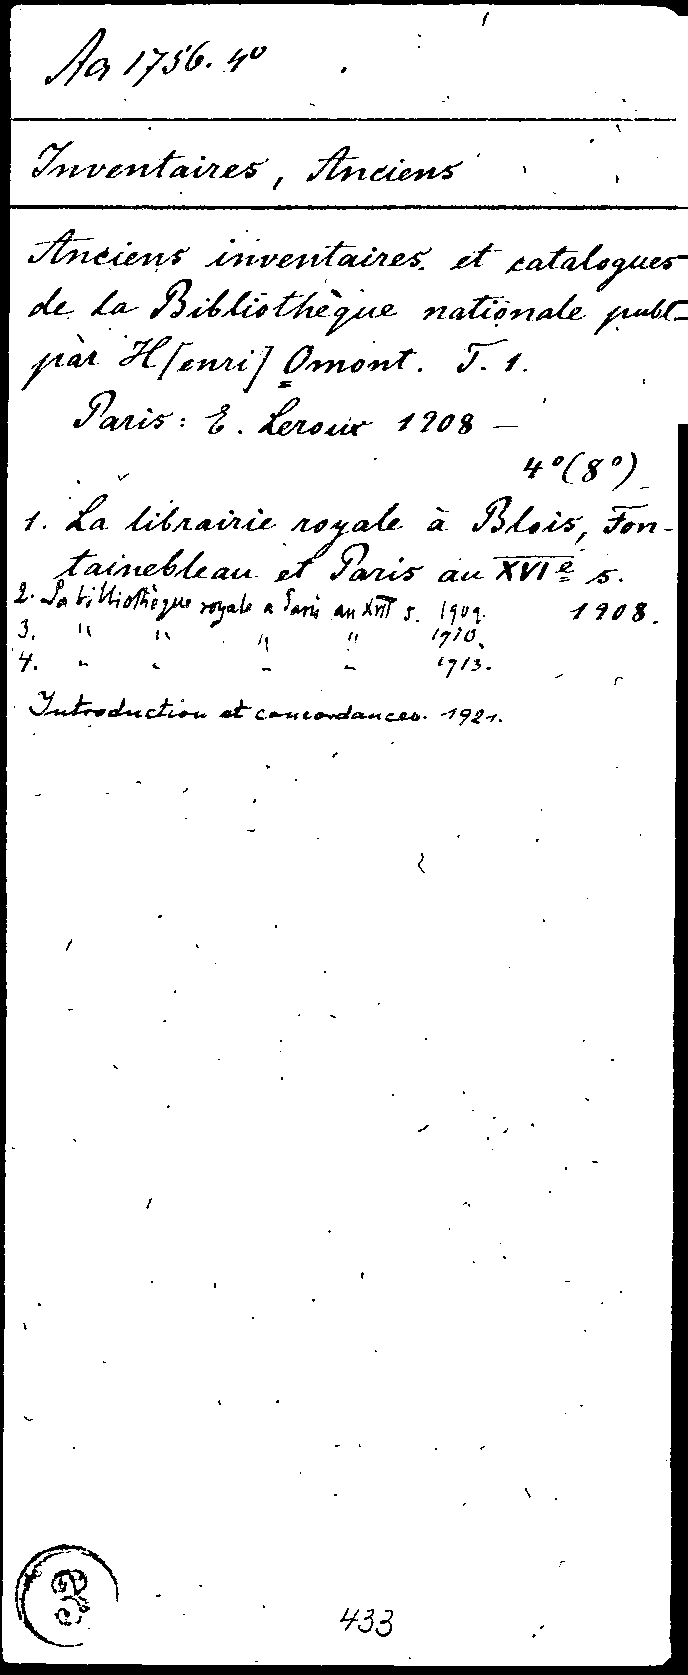 Aa 1756. 4°
Inventaires, Anciens
Anciens inventaires et catalogues
de la Bibliothèque nationale publ.
par H[enri] Omont. T. 1.
Paris: E. Leroux 1908 —
4° (8°)
1. La librairie royale à Blois, Fon-
tainebleau et Paris au XVIe s.
1908.
2. La bibliothèque royale a Paris au XVII s. 1909.
3. " " " " 1910.
4. " " " " 1913.
Introduction et concordances. 1921.
433